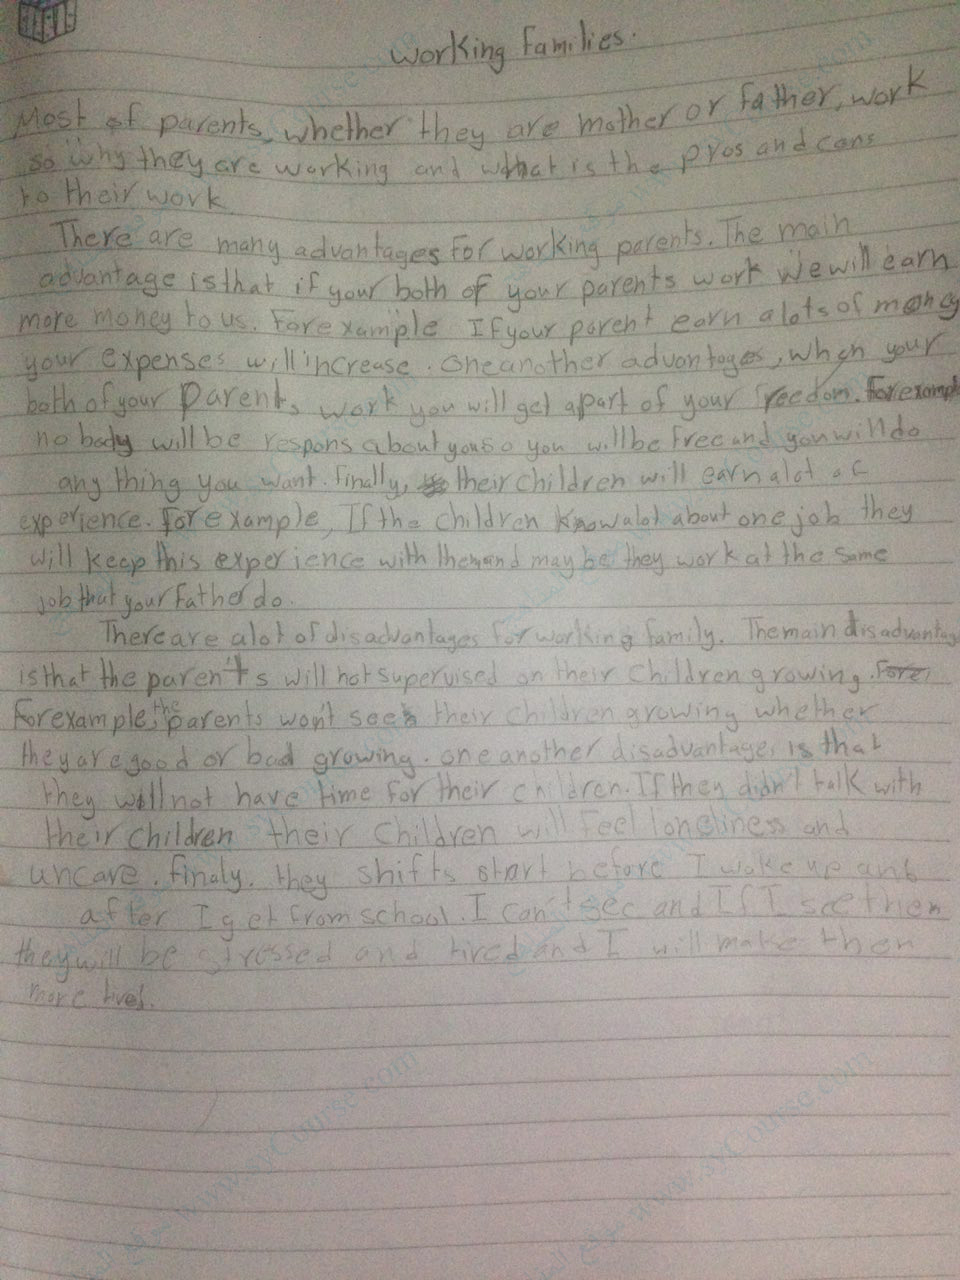 Working Families.
Most of parents, whether they are mother or father, work
so why they are working and what is the pros and cons
to their work
There are many advantages for working parents. The main
advantage is that if your both of your parents work we will earn
more money to us. For example If your parent earn a lots of money
your expenses will increase. One another advantages, when your
both of your Parents work you will get a part of your freedom. For example
no body will be respons about you so you will be free and you will do
any thing you want. Finally, their children will earn a lot of
experience. For example, If the children know a lot about one job they
will keep this experience with them and may be they work at the same
job that your father do.
There are a lot of disadvantages for working family. The main disadvantage
is that the parent's will not supervised on their children growing.
For example, the parents won't see their children growing whether
they are good or bad growing. one another disadvantages is that
they will not have time for their children. If they didn't talk with
their children their children will feel loneliness and
uncare. finaly, they shifts start before I wake up and
after I get from school. I can't see and If I see them
they will be stressed and tired and I will make them
more tired.
www.syCourse.com
www.syCourse.com